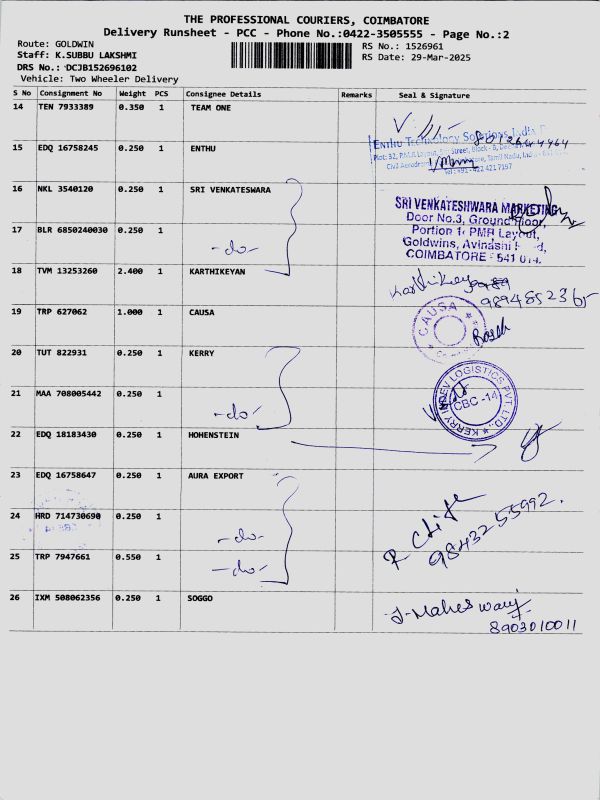 THE PROFESSIONAL COURIERS, COIMBATORE
Delivery Runsheet - PCC - Phone No.:0422-3505555 - Page No.:2
Route: GOLDWIN
Staff: K.SUBBU LAKSHMI
DRS No.: DCJB152696102
Vehicle: Two Wheeler Delivery
RS No.: 1526961
RS Date: 29-Mar-2025
S No Consignment No Weight PCS Consignee Details Remarks Seal & Signature
14 TEN 7933389 0.350 1 TEAM ONE
15 EDQ 16758245 0.250 1 ENTHU
ENTHU Technology Solutions India
Plot: 32, P.M.R Layout,
Tamil Nadu,
16 NKL 3540120 0.250 1 SRI VENKATESWARA
SRI VENKATESHWARA MARKETING
Door No.3, Ground Floor,
Portion 1, PMR Layout,
Goldwins, Avinashi
COIMBATORE - 641 014.
17 BLR 6850240030 0.250 1 -do-
18 TVM 13253260 2.400 1 KARTHIKEYAN
9894852365
19 TRP 627062 1.000 1 CAUSA
CAUSA
20 TUT 822931 0.250 1 KERRY
KERRY INDEV LOGISTICS PVT. LTD.
CBC -14
21 MAA 708005442 0.250 1 -do-
22 EDQ 18183430 0.250 1 HOHENSTEIN
23 EDQ 16758647 0.250 1 AURA EXPORT
24 HRD 714730690 0.250 1 -do-
9843255992.
25 TRP 7947661 0.550 1 -do-
26 IXM 508062356 0.250 1 SOGGO
J-Maheswary
8903010011